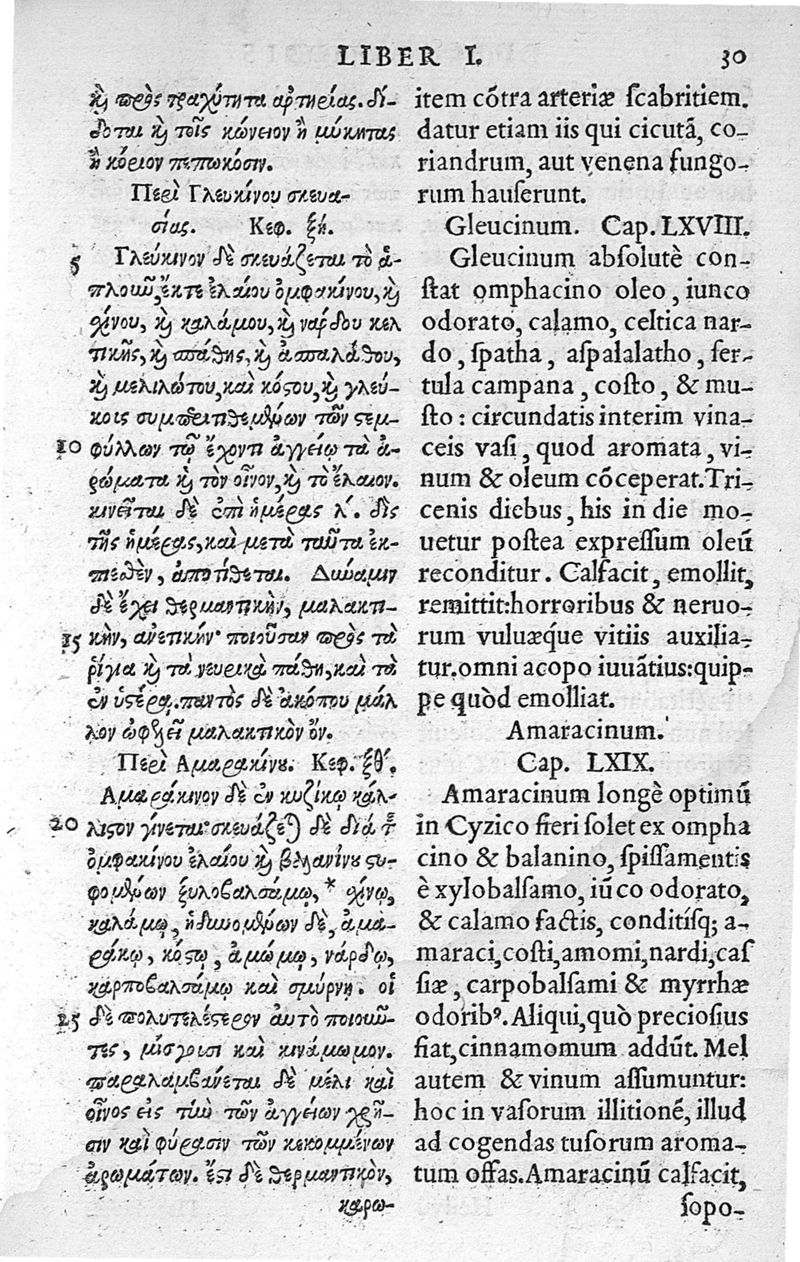 LIBER I. 30
καὶ πρὸς τραχύτητα ἀρτηρίας. δί-
δοται καὶ τοῖς κώνειον ἢ μύκητας
ἢ κόριον πεπωκόσιν.
Περὶ Γλευκίνου σκευα-
σίας. Κεφ. ξή.
5 Γλεύκινον δὲ σκευάζεται τὸ ἁ-
πλοῦν, ἔκ τε ἐλαίου ὀμφακίνου, καὶ
σχίνου, καὶ καλάμου, καὶ νάρδου κελ
τικῆς, καὶ σπάθης, καὶ ἀσπαλάθου,
καὶ μελιλώτου, καὶ κόστου, καὶ γλεύ-
κοις συμπεριτιθεμένων τῶν στεμ-
10 φύλλων τῷ ἔχοντι ἀγγείῳ τὰ ἀ-
ρώματα καὶ τὸν οἶνον, καὶ τὸ ἔλαιον.
κινεῖται δὲ ἐπὶ ἡμέρας λ´. δὶς
τῆς ἡμέρας, καὶ μετὰ ταῦτα ἐκ-
πιεθὲν, ἀποτίθεται. Δύναμιν
δὲ ἔχει θερμαντικὴν, μαλακτι-
15 κὴν, ἀνετικήν· ποιοῦσαν πρὸς τὰ
ῥίγια καὶ τὰ νευρικὰ πάθη, καὶ τὰ
ἐν ὑστέρᾳ. παντὸς δὲ ἀκόπου μάλ
λον ὠφελεῖ μαλακτικὸν ὄν.
Περὶ Αμαρακίνου. Κεφ. ξθ´.
Αμαράκινον δὲ ἐν κυζίκῳ κάλ-
20 λιστον γίνεται· σκευάζεται δὲ διὰ τοῦ
ὀμφακίνου ἐλαίου καὶ βαλανίνου στυ-
φομένων ξυλοβαλσάμῳ, * σχίνῳ,
καλάμῳ, ἡδυνομένων δὲ, ἀμα-
ράκῳ, κόστῳ, ἀμώμῳ, νάρδῳ,
καρποβαλσάμῳ καὶ σμύρνῃ. οἱ
25 δὲ πολυτελέστερον αὐτὸ ποιοῦν-
τες, μίσγουσι καὶ κινάμωμον.
παραλαμβάνεται δὲ μέλι καὶ
οἶνος εἰς τὴν τῶν ἀγγείων χρῖ-
σιν καὶ φύρασιν τῶν κεκομμένων
ἀρωμάτων. ἔστι δὲ θερμαντικὸν,
καρω-
item cōtra arteriæ scabritiem.
datur etiam iis qui cicutā, co-
riandrum, aut venena fungo-
rum hauserunt.
Gleucinum. Cap. LXVIII.
Gleucinum absolutè con-
stat omphacino oleo, iunco
odorato, calamo, celtica nar-
do, spatha, aspalalatho, ser-
tula campana, costo, & mu-
sto: circundatis interim vina-
ceis vasi, quod aromata, vi-
num & oleum cōceperat. Tri-
cenis diebus, his in die mo-
uetur postea expressum oleū
reconditur. Calfacit, emollit,
remittit: horroribus & neruo-
rum vuluæque vitiis auxilia-
tur. omni acopo iuuātius: quip-
pe quòd emolliat.
Amaracinum.
Cap. LXIX.
Amaracinum longè optimū
in Cyzico fieri solet ex ompha
cino & balanino, spissamentis
è xylobalsamo, iūco odorato,
& calamo factis, conditisq; a-
maraci, costi, amomi, nardi, cas
siæ, carpobalsami & myrrhæ
odoribꝰ. Aliqui, quò preciosius
fiat, cinnamomum addūt. Mel
autem & vinum assumuntur:
hoc in vasorum illitionē, illud
ad cogendas tusorum aroma-
tum offas. Amaracinū calfacit,
sopo-